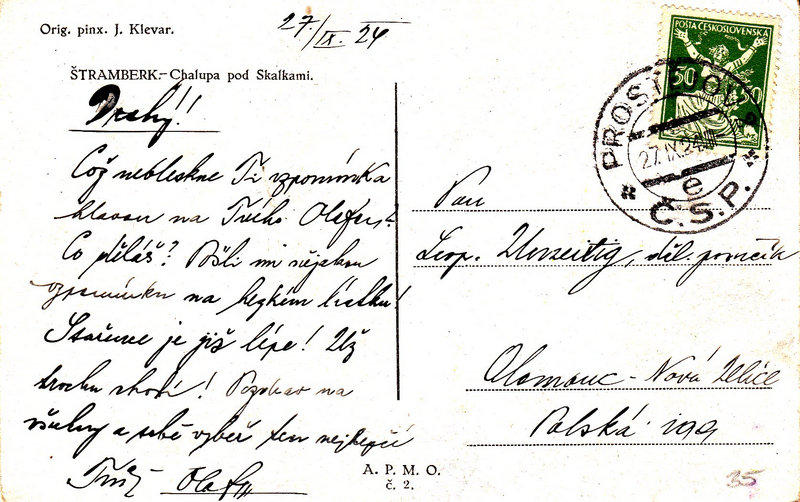 Orig. pinx. J. Klevar.
27/IX. 24
ŠTRAMBERK.– Chalupa pod Skalkami.
Drahý!
Což nebleskne Ti vzpomínka
hlavou na Tvého Olafa?
Co děláš? Pošli mi nějakou
vzpomínku na hezkém lístku!
Stařence je již lépe! Už
trochu chodí! Pozdrav na
všechny a sobě vyber ten nejlepší
Tvůj Olaf
A. P. M. O.
č. 2.
POŠTA ČESKOSLOVENSKÁ
50 50
PROSTĚJOV 2
27.IX.24
e
Č.S.P.
Pan
Leop. děl. poručík
Olomouc - Nová Ulice
Polská 199
35